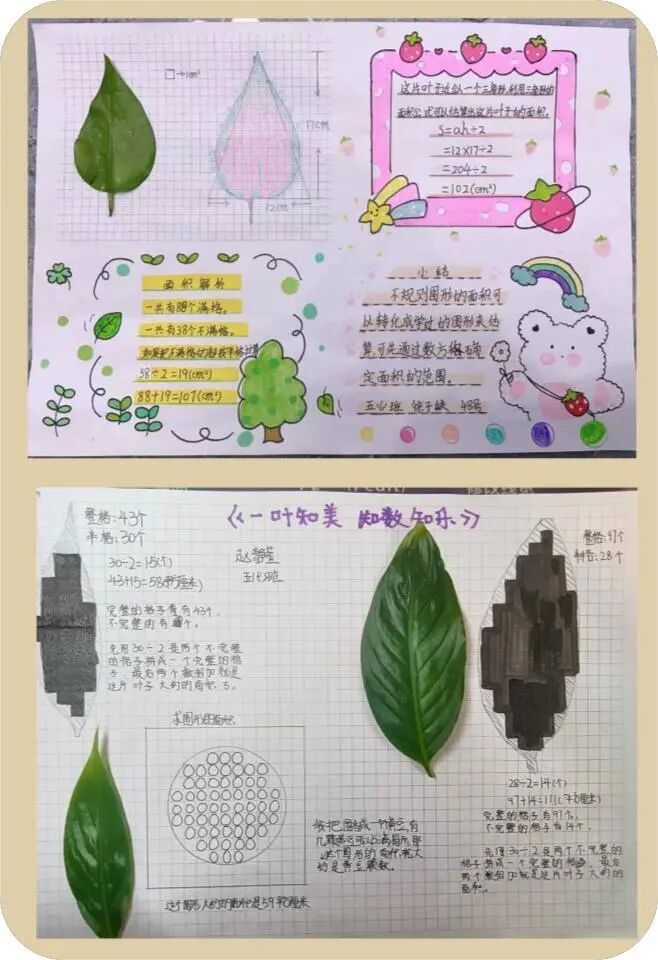 □→1cm²
17cm
12cm
这片叶子近似一个三角形,利用三角形的
面积公式可以估算出这片叶子的面积。
S=ah÷2
=12×17÷2
=204÷2
=102(cm²)
面积解析
一共有88个满格。
一共有38个不满格。
如果把不满格的按半格计算
38÷2=19(cm²)
88+19=107(cm²)
小结
不规则图形的面积可
以转化成学过的图形来估
算,可先通过数方格确
定面积的范围。
48号
《一叶知美 知数知乐》
整格:43个
半格:30个
30÷2=15(个)
43+15=58(平方厘米)
完整的格子有43个,
不完整的有 个。
先用30÷2是两个不完整
的格子拼成一个完整的格
子,最后两个数相加就是
这片叶子大约的面积。
赵
五 班
求圆形的面积
这个圆形大约的面积是59平方厘米
整格:97个
半格:28个
28÷2=14(个)
97+14=111(平方厘米)
完整的格子有97个,
不完整的格子有14个。
÷2是两个不完整的
格子拼成一个完整的格子,最后
两个数相加就是这片叶子大约的
面积。